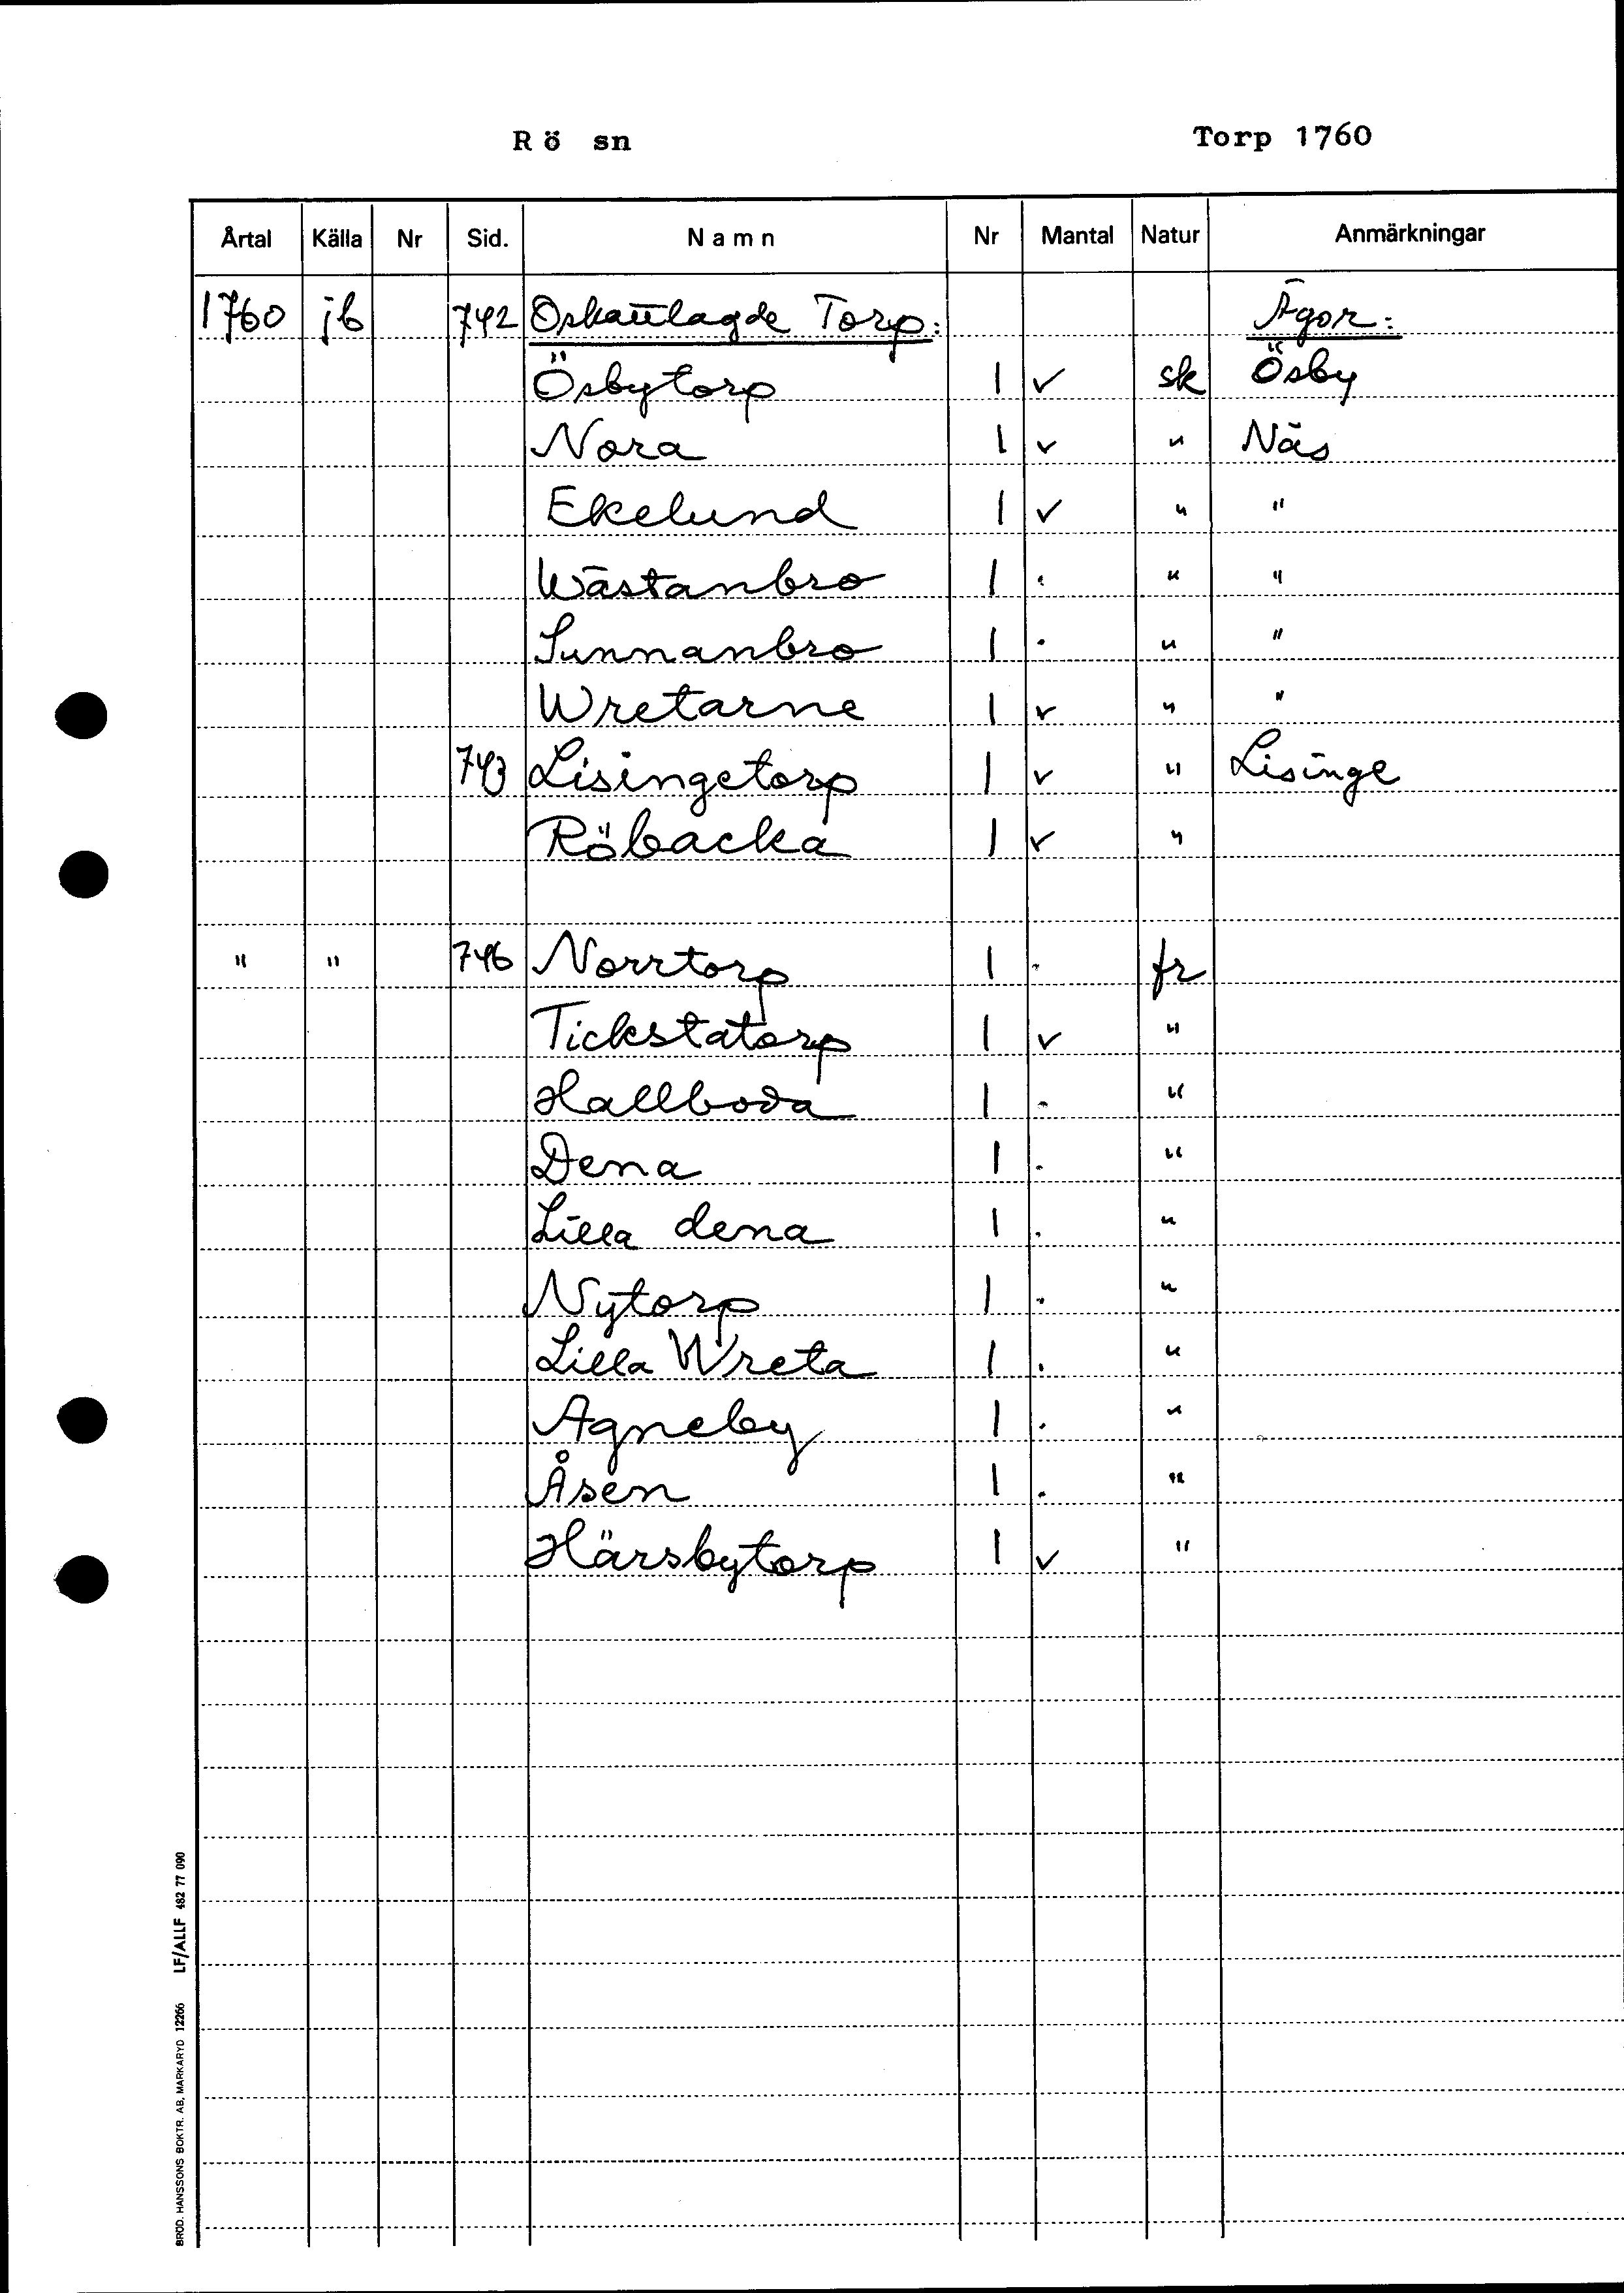 Rö sn Torp 1760
Årtal Källa Nr Sid. Namn Nr Mantal Natur Anmärkningar
1760 jb 742 Oskattlagde Torp: Ägor:
Ösbytorp 1 ✓ sk Ösby
Nora 1 ✓ " Näs
Ekelund 1 ✓ " "
Wästanbro 1 . " "
Sunnanbro 1 . " "
Wretarne 1 ✓ " "
743 Lisingetorp 1 ✓ " Lisinge
Röbacka 1 ✓ "
" " 746 Norrtorp 1 . fr
Tickstatorp 1 ✓ "
Hallboda 1 . "
Dena 1 . "
Lilla dena 1 . "
Nytorp 1 . "
Lilla Wreta 1 . "
Agneby 1 . "
Åsen 1 . "
Härsbytorp 1 ✓ "
BRÖD. HANSSONS BOKTR. AB, MARKARYD 12266 LF/ALLF 482 77 090